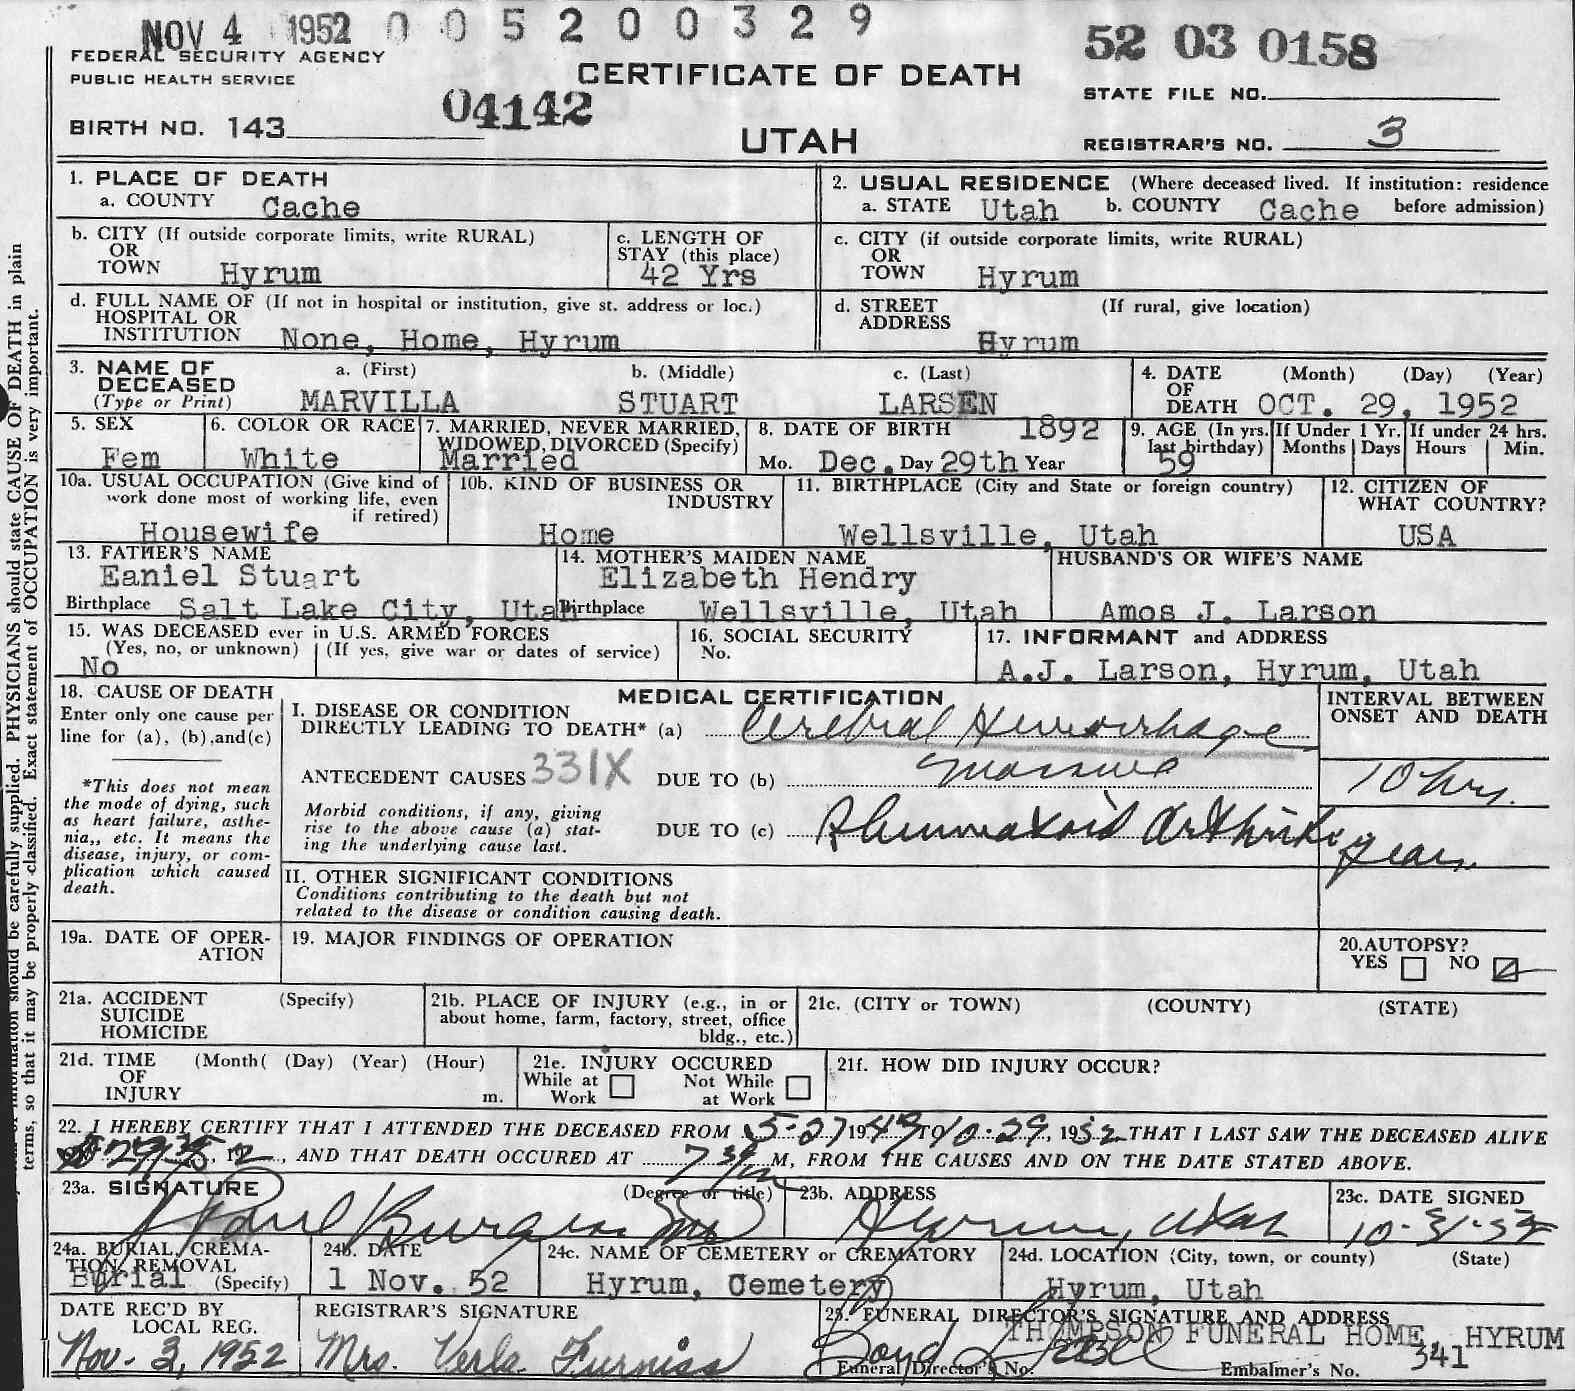 NOV 4 1952 0 0 5 2 0 0 3 2 9
52 03 0158
FEDERAL SECURITY AGENCY
PUBLIC HEALTH SERVICE
CERTIFICATE OF DEATH
STATE FILE NO.
04142
BIRTH NO. 143
UTAH
REGISTRAR'S NO. 3
1. PLACE OF DEATH
a. COUNTY Cache
2. USUAL RESIDENCE (Where deceased lived. If institution: residence
a. STATE Utah b. COUNTY Cache before admission)
b. CITY (If outside corporate limits, write RURAL)
OR
TOWN Hyrum
c. LENGTH OF
STAY (this place)
42 Yrs
c. CITY (if outside corporate limits, write RURAL)
OR
TOWN Hyrum
d. FULL NAME OF (If not in hospital or institution, give st. address or loc.)
HOSPITAL OR
INSTITUTION None, Home, Hyrum
d. STREET (If rural, give location)
ADDRESS
Hyrum
3. NAME OF a. (First) b. (Middle) c. (Last)
DECEASED
(Type or Print) MARVILLA STUART LARSEN
4. DATE (Month) (Day) (Year)
OF
DEATH OCT. 29, 1952
5. SEX
Fem
6. COLOR OR RACE
White
7. MARRIED, NEVER MARRIED,
WIDOWED, DIVORCED (Specify)
Married
8. DATE OF BIRTH 1892
Mo. Dec. Day 29th Year
9. AGE (In yrs.
last birthday)
59
If Under 1 Yr.
Months Days
If under 24 hrs.
Hours Min.
10a. USUAL OCCUPATION (Give kind of
work done most of working life, even
if retired)
Housewife
10b. KIND OF BUSINESS OR
INDUSTRY
Home
11. BIRTHPLACE (City and State or foreign country)
Wellsville, Utah
12. CITIZEN OF
WHAT COUNTRY?
USA
13. FATHER'S NAME
Eaniel Stuart
Birthplace Salt Lake City, Utah
14. MOTHER'S MAIDEN NAME
Elizabeth Hendry
Birthplace Wellsville, Utah
HUSBAND'S OR WIFE'S NAME
Amos J. Larson
15. WAS DECEASED ever in U.S. ARMED FORCES
(Yes, no, or unknown) (If yes, give war or dates of service)
No
16. SOCIAL SECURITY
No.
17. INFORMANT and ADDRESS
A.J. Larson, Hyrum, Utah
18. CAUSE OF DEATH
Enter only one cause per
line for (a), (b), and (c)
*This does not mean
the mode of dying, such
as heart failure, asthe-
nia,, etc. It means the
disease, injury, or com-
plication which caused
death.
MEDICAL CERTIFICATION
I. DISEASE OR CONDITION
DIRECTLY LEADING TO DEATH* (a) Cerebral Hemorrhage
ANTECEDENT CAUSES 331X DUE TO (b) massive
Morbid conditions, if any, giving
rise to the above cause (a) stat-
ing the underlying cause last.
DUE TO (c) Rheumatoid Arthritis
INTERVAL BETWEEN
ONSET AND DEATH
10 hrs.
years
II. OTHER SIGNIFICANT CONDITIONS
Conditions contributing to the death but not
related to the disease or condition causing death.
19a. DATE OF OPER-
ATION
19. MAJOR FINDINGS OF OPERATION
20. AUTOPSY?
YES NO
21a. ACCIDENT (Specify)
SUICIDE
HOMICIDE
21b. PLACE OF INJURY (e.g., in or
about home, farm, factory, street, office
bldg., etc.)
21c. (CITY or TOWN) (COUNTY) (STATE)
21d. TIME (Month( (Day) (Year) (Hour)
OF
INJURY m.
21e. INJURY OCCURED
While at Work
Not While at Work
21f. HOW DID INJURY OCCUR?
22. I HEREBY CERTIFY THAT I ATTENDED THE DECEASED FROM 5-27 1949 TO 10-29, 1952 THAT I LAST SAW THE DECEASED ALIVE
, AND THAT DEATH OCCURED AT M, FROM THE CAUSES AND ON THE DATE STATED ABOVE.
23a. SIGNATURE (Degree or title)
Paul Burgess MD
23b. ADDRESS
Hyrum, Utah
23c. DATE SIGNED
10-31-52
24a. BURIAL, CREMA-
TION, REMOVAL
Burial (Specify)
24b. DATE
1 Nov. 52
24c. NAME OF CEMETERY or CREMATORY
Hyrum, Cemetery
24d. LOCATION (City, town, or county) (State)
Hyrum, Utah
DATE REC'D BY
LOCAL REG.
Nov. 3, 1952
REGISTRAR'S SIGNATURE
Mrs. Verla Furniss
25. FUNERAL DIRECTOR'S SIGNATURE AND ADDRESS
THOMPSON FUNERAL HOME, HYRUM
Boyd
Funeral Director's No. Embalmer's No. 341
information should be carefully supplied. PHYSICIANS should state CAUSE OF DEATH in plain
terms, so that it may be properly classified. Exact statement of OCCUPATION is very important.